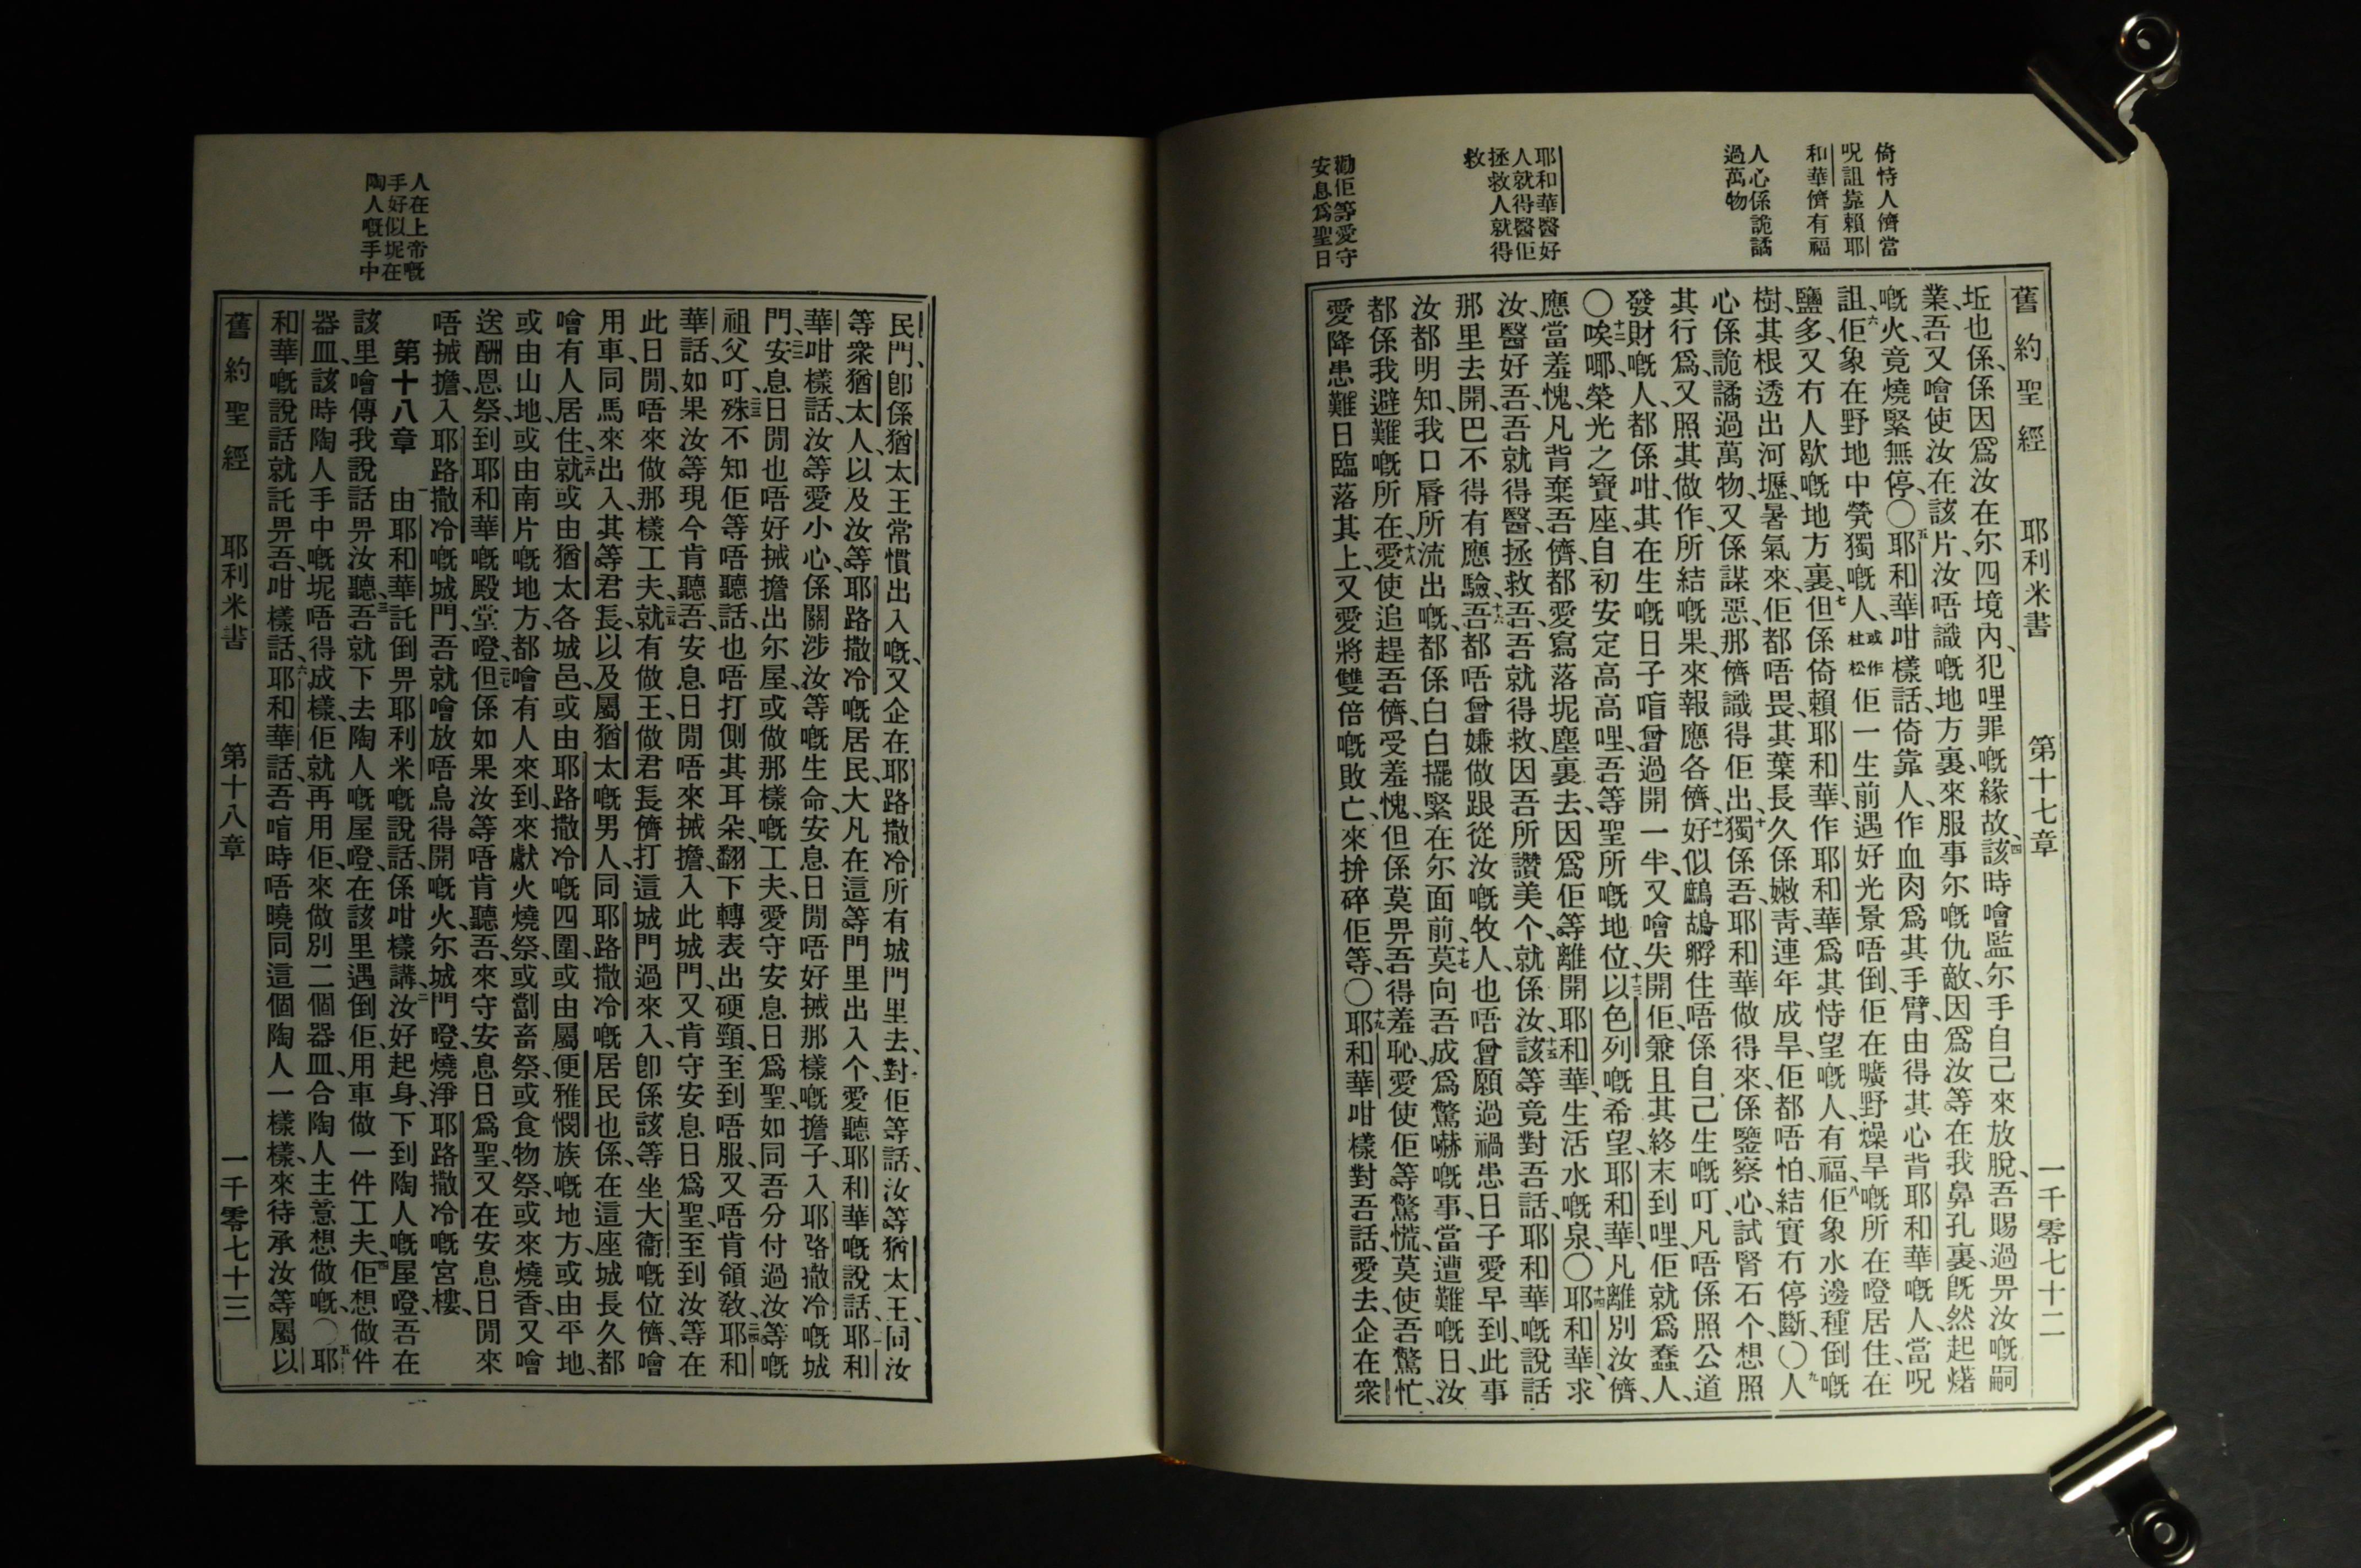 倚恃人儕當
呪詛靠賴耶
和華儕有福
人心係詭譎
過萬物
耶和華醫好
人就得醫佢
拯救人就得
救
勸佢等愛守
安息爲聖日
舊約聖經 耶利米書 第十七章 一千零七十二
坵也係、係因爲汝在尔四境內、犯哩罪嘅緣故、四該時噲監尔手自己來放脫、吾賜過畀汝嘅嗣
業、吾又噲使汝在該片、汝唔識嘅地方裏、來服事尔嘅仇敵、因爲汝等在我鼻孔裏、既然起㷮
嘅火、竟燒緊無停、〇五耶和華咁樣話、倚靠人、作血肉爲其手臂、由得其心背耶和華嘅人、當呪
詛、六佢象在野地中煢獨嘅人、或作杜松佢一生前遇好光景唔倒、佢在曠野燥旱嘅所在噔居住、在
鹽多、又冇人歇嘅地方裏、七但係倚賴耶和華、作耶和華爲其恃望嘅人、有福、八佢象水邊種倒嘅
樹、其根透出河壢、暑氣來、佢都唔畏、其葉長久係嫩靑、連年成旱、佢都唔怕、結實冇停斷、〇九人
心係詭譎過萬物、又係謀惡、那儕識得佢出、十獨係吾、耶和華做得來、係鑒察心、試腎石个、想照
其行爲、又照其做作、所結嘅果、來報應各儕、十一好似鷓鴣孵住唔係自己生嘅叮、凡唔係照公道
發財嘅人、都係咁、其在生嘅日子喑曾過開一半、又噲失開佢、兼且其終末到哩、佢就爲蠢人、
〇十二唉㖿、榮光之寶座、自初安定高高哩、吾等聖所嘅地位、十三以色列嘅希望、耶和華、凡離別汝儕、
應當羞愧、凡背棄吾儕、都愛寫落坭塵裏去、因爲佢等離開耶和華、生活水嘅泉、〇十四耶和華、求
汝、醫好吾、吾就得醫、拯救吾、吾就得救、因吾所讚美个、就係汝、十五該等竟對吾話、耶和華嘅說話
那里去開、巴不得有應驗、十六吾都唔曾嫌做跟從汝嘅牧人、也唔曾願過禍患日子愛早到、此事
汝都明知、我口脣所流出嘅、都係白白擺緊在尔面前、十七莫向吾成爲驚嚇嘅事、當遭難嘅日、汝
都係我避難嘅所在、十八愛使追趕吾儕、受羞愧、但係莫畀吾得羞恥、愛使佢等驚慌、莫使吾驚忙、
愛降患難日臨落其上、又愛將雙倍嘅敗亡、來拚碎佢等、〇十九耶和華咁樣對吾話、愛去企在衆
民門、卽係猶太王常慣出入嘅、又企在耶路撒冷所有城門里去、二十對佢等話、汝等猶太王、同汝
等衆猶太人、以及汝等耶路撒冷嘅居民、大凡在這等門里出入个、愛聽耶和華嘅說話、二一耶和
華咁樣話、汝等愛小心、係關涉汝等嘅生命、安息日閒唔好㧡那樣嘅擔子、入耶路撒冷嘅城
門、二二安息日閒也唔好㧡擔出尔屋、或做那樣嘅工夫、愛守安息日爲聖、如同吾分付過汝等嘅
祖父叮、二三殊不知佢等唔聽話、也唔打側其耳朵、翻下轉表出硬頸、至到唔服、又唔肯領敎、二四耶和
華話、如果汝等現今肯聽吾、安息日閒唔來㧡擔、入此城門、又肯守安息日爲聖、至到汝等在
此日閒、唔來做那樣工夫、二五就有做王、做君長儕打這城門過來入、卽係該等坐大衞嘅位儕、噲
用車、同馬來出入、其等君長、以及屬猶太嘅男人、同耶路撒冷嘅居民也係、在這座城長久都
噲有人居住、二六就或由猶太各城邑、或由耶路撒冷嘅四圍、或由屬便雅憫族嘅地方、或由平地、
或由山地、或由南片嘅地方、都噲有人來到、來獻火燒祭、或劏畜祭、或食物祭、或來燒香、又噲
送酬恩祭、到耶和華嘅殿堂噔、二七但係如果汝等唔肯聽吾、來守安息日爲聖、又在安息日閒來
唔㧡擔、入耶路撒冷嘅城門、吾就噲放唔烏得開嘅火、尔城門噔、燒淨耶路撒冷嘅宮樓、
第十八章 一由耶和華託倒畀耶利米嘅說話、係咁樣講、二汝好起身、下到陶人嘅屋噔、吾在
該里噲傳我說話畀汝聽、三吾就下去陶人嘅屋噔、在該里遇倒佢、用車做一件工夫、四佢想做件
器皿、該時陶人手中嘅坭唔得成樣、佢就再用佢、來做別二個器皿、合陶人主意想做嘅、〇五耶
和華嘅說話就託畀吾、咁樣話、六耶和華話、吾喑時唔曉同這個陶人一樣樣、來待承汝等屬以
舊約聖經 耶利米書 第十八章 一千零七十三
人在上帝嘅
手好似坭在
陶人嘅手中